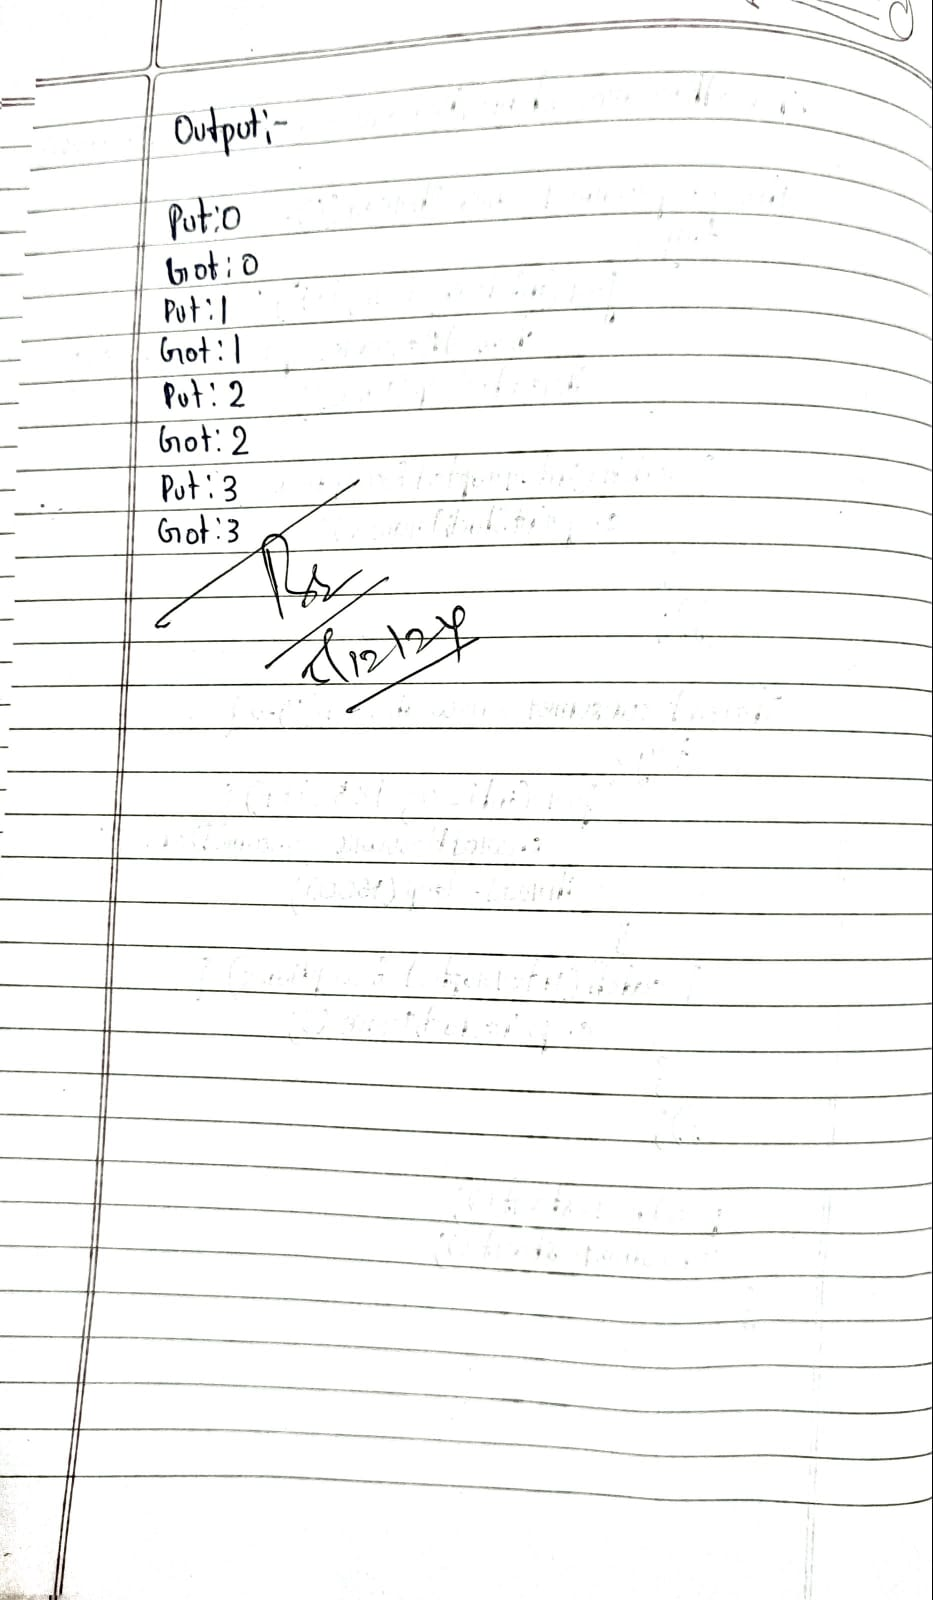 Output:-
Put:0
Got:0
Put:1
Got:1
Put:2
Got:2
Put:3
Got:3